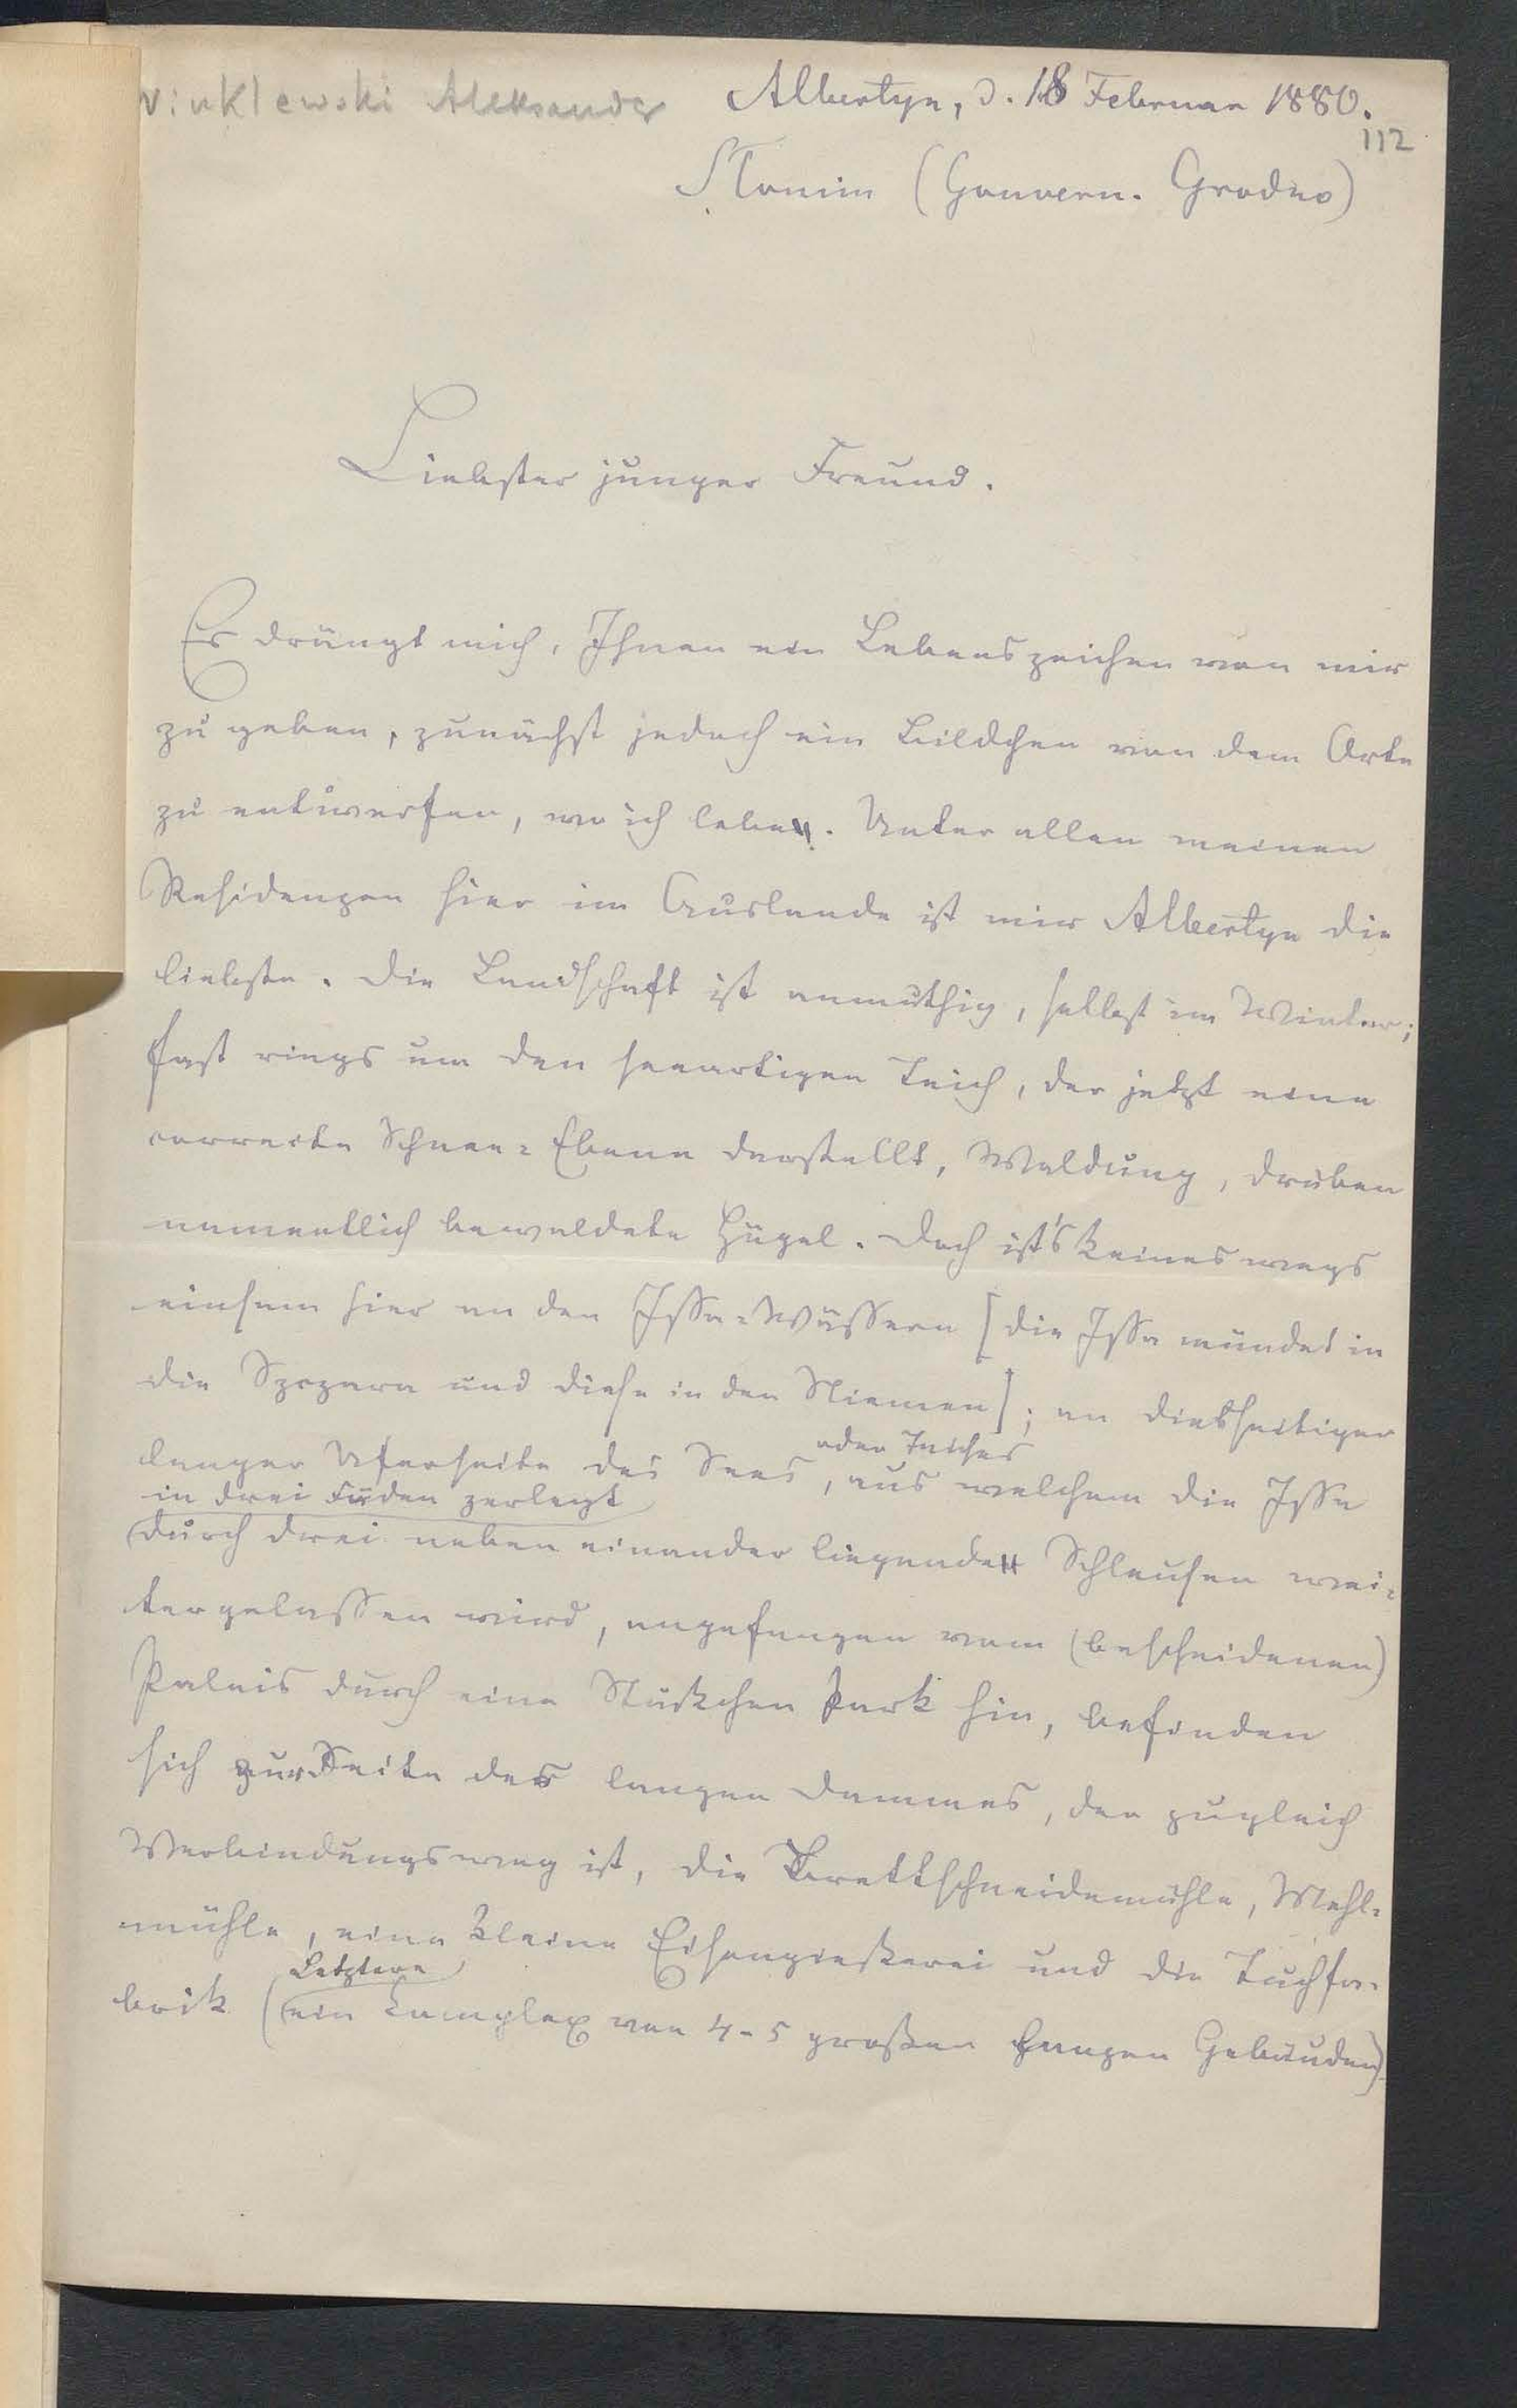 Winklewski Aleksander
Albertyn, d. 18 Februar 1880.
112
Słonim (Gouvern. Grodno)
Liebster junger Freund.
Es drängt mich, Ihnen ein Lebenszeichen von mir
zu geben, zunächst jedoch ein Bildchen von dem Orte
zu entwerfen, wo ich lebe. Unter allen meinen
Residenzen hier im Auslande ist mir Albertyn die
liebste. Die Landschaft ist anmuthig, selbst im Winter;
fast rings um den seeartigen Teich, der jetzt eine
correcte Schnee-Ebene darstellt, Waldung, drüben
namentlich bewaldete Hügel. Doch ist's keineswegs
einsam hier an den Issa-Wässern [die Issa mündet in
die Szczara und diese in den Niemen]; an diesseitiger
oder Teiches
langer Uferseite des Sees, aus welchem die Issa
in drei Fäden zerlegt
durch drei neben einander liegende Schleusen wei-
tergelassen wird, angefangen vom (bescheidenen)
Palais durch eine Stückchen Park hin, befinden
sich zur Seite des langen Dammes, der zugleich
Verbindungsweg ist, die Brettschneidemühle, Mehl-
mühle, eine kleine Eisengießerei und die Tuchfa-
Letztere
brik (ein Complex von 4-5 großen langen Gebäuden)